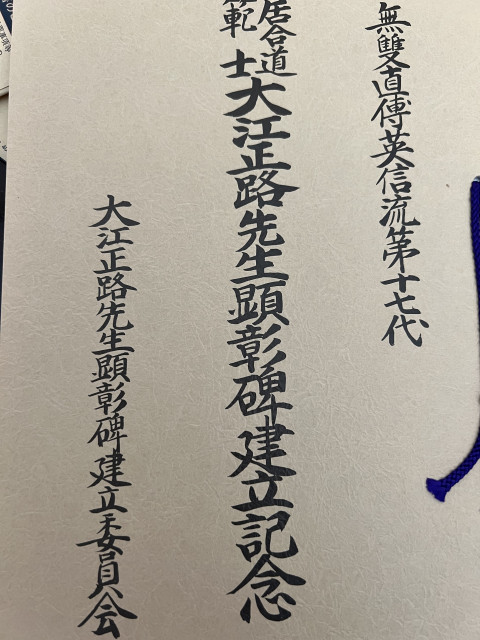 無雙直傳英信流第十七代
居合道
範士
大江正路先生顕彰碑建立記念
大江正路先生顕彰碑建立委員会